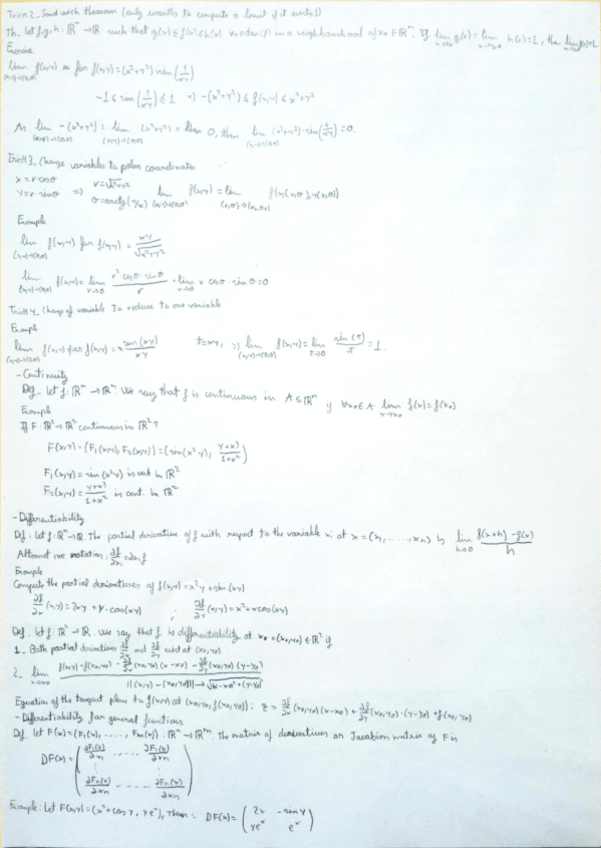 Trick 2_ Sandwich theorem (only useful to compute a limit if it exists))
Th. Let f,g,h: ℝⁿ → ℝ such that g(x) ≤ f(x) ≤ h(x) in a neighbourhood of x₀ ∈ ℝⁿ. If lim_{x→x₀} g(x) = lim_{x→x₀} h(x) = L, then lim_{x→x₀} f(x) = L
Exercise
lim_{(x,y)→(0,0)} f(x,y) for f(x,y) = (x²+y²) sin(1/xy)
-1 ≤ sin(1/xy) ≤ 1 => -(x²+y²) ≤ f(x,y) ≤ x²+y²
As lim_{(x,y)→(0,0)} -(x²+y²) = lim_{(x,y)→(0,0)} (x²+y²) = 0, then lim_{(x,y)→(0,0)} (x²+y²)·sin(1/xy) = 0.
Trick 3_ Change variables to polar coordinates
x = r·cosθ r = √x²+y²
y = r·sinθ => θ = arctg(y/x) lim_{(x,y)→(0,0)} f(x,y) = lim f(x(r,θ), y(r,θ))
Example
lim_{(x,y)→(0,0)} f(x,y) for f(x,y) = xy/√x²+y²
lim_{(x,y)→(0,0)} f(x,y) = lim_{r→0} r² cosθ·sinθ / r = lim_{r→0} r·cosθ·sinθ = 0
Trick 4_ Change of variable to reduce to one variable
Example
lim_{(x,y)→(0,0)} f(x,y) for f(x,y) = sin(xy)/xy t = xy, => lim_{(x,y)→(0,0)} f(x,y) = lim_{t→0} sin(t)/t = 1.
- Continuity
Def_ Let f: ℝⁿ → ℝᵐ. We say that f is continuous in A ⊆ ℝⁿ if ∀x₀ ∈ A lim_{x→x₀} f(x) = f(x₀)
Example
If F: ℝ² → ℝ² continuous in ℝ²?
F(x,y) = (F₁(x,y), F₂(x,y)) = (sin(x²y), y+x³/1+x²)
F₁(x,y) = sin(x²y) is cont. in ℝ²
F₂(x,y) = y+x³/1+x² is cont. in ℝ²
- Differentiability
Def: Let f: ℝⁿ → ℝ. The partial derivative of f with respect to the variable xᵢ at x = (x₁, ....., xₙ) is lim_{h→0} f(x+h) - f(x) / h
Alternative notation: ∂f/∂xᵢ = ∂xᵢf
Example
Compute the partial derivatives of f(x,y) = x²y + sin(xy)
∂f/∂x (x,y) = 2xy + y·cos(xy) ; ∂f/∂y (x,y) = x² + x cos(xy)
Def. Let f: ℝ² → ℝ. We say that f is differentiability at x₀ = (x₀,y₀) ∈ ℝ² if
1. Both partial derivatives ∂f/∂x and ∂f/∂y exist at (x₀,y₀)
2. lim_{x→x₀} f(x,y) - f(x₀,y₀) - ∂f/∂x (x₀,y₀)(x-x₀) - ∂f/∂y (x₀,y₀)(y-y₀) / ||(x,y) - (x₀,y₀)|| → √(x-x₀)²+(y-y₀)²
Equation of the tangent plane to f(x,y) at (x₀,y₀, f(x₀,y₀)): z = ∂f/∂x (x₀,y₀)(x-x₀) + ∂f/∂y (x₀,y₀)·(y-y₀) + f(x₀,y₀)
- Differentiability for general functions
Def. Let F(x) = (F₁(x), ....., Fₘ(x)): ℝⁿ → ℝᵐ. The matrix of derivatives or Jacobian matrix of F is
DF(x) = (∂F₁(x)/∂x₁ ..... ∂F₁(x)/∂xₙ
⋮
∂Fₙ(x)/∂xₙ ..... ∂Fₙ(x)/∂xₙ)
Example: Let F(x,y) = (x²+cos y, y eˣ), then: DF(x) = (2x -sin y
y eˣ eˣ)